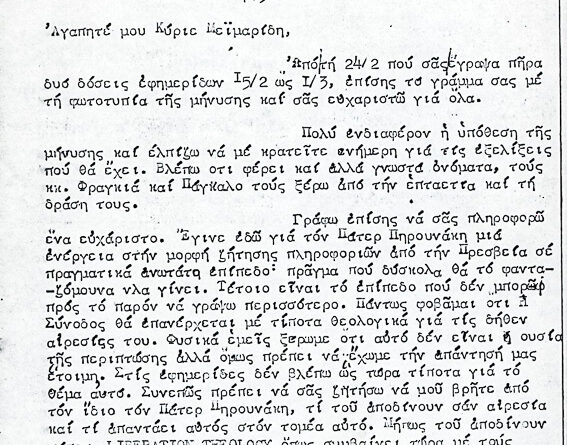 Ἀγαπητέ μου Κύριε Μεϊμαρίδη,
Ἀπό τή 24/2 πού σᾶς ἔγραψα πῆρα
δυό δόσεις ἐφημερίδων I5/2 ὥς I/3, ἐπίσης το γράμμα σας μέ
τή φωτοτυπία τῆς μήνυσης καί σᾶς εὐχαριστῶ γιά ὅλα.
Πολύ ἐνδιαφέρον ἡ ὑπόθεση τῆς
μήνυσης καί ἐλπίζω νά μέ κρατεῖτε ἐνήμερη γιά τίς ἐξελίξεις
πού θά ἔχει. Βλέπω ὅτι φέρει καί ἀλλά γνωστά ὀνόματα, τούς
κκ. Φραγκιά και Πάγκαλο τούς ξέρω ἀπό τήν ἑπταετία καί τή
δράση τους.
Γράφω ἐπίσης νά σᾶς πληροφορῶ
ἕνα εὐχάριστο. Ἔγινε ἐδῶ γιά τόν Πάτερ Πηρουνάκη μιά
ἐνέργεια στήν μορφή ζήτησης πληροφοριῶν ἀπό τήν Πρεσβεία σέ
πραγματικά ἀνωτάτη ἐπίπεδο: πρᾶγμα πού δύσκολα θά τό φαντα-
-ζόμουνα νλα γίνει. Τέτοιο εἶναι τό ἐπίπεδο πού δέν μπορῶ
πρός τό παρόν νά γράψω περισσότερο. Πάντως φοβᾶμαι ὅτι ἡ
Σύνοδος θά ἐπανέρχεται μέ τίποτα θεολογικά γιά τίς δῆθεν
αἱρεσίες του. Φυσικά ἐμεῖς ξέρωμε ὅτι αὐτό δέν εἶναι ἡ οὐσία
τῆς περιπτώσης ἀλλά ὅμως πρέπει νά ἔχωμε τήν ἀπάντησή μας
ἔτοιμη. Στίς ἐφημερίδες δέν βλέπω ὥς τώρα τίποτα γιά τό
θέμα αὐτό. Συνεπῶς πρέπει νά σᾶς ζητήσω νά μοῦ βρῆτε ἀπό
τόν ἴδιο τόν Πάτερ Πηρουνάκη, τί τοῦ ἀποδίνουν σάν αἱρεσία
καί τί ἀπαντάει αὐτός στόν τομέα αὐτό. Μήπως τοῦ ἀποδίνουν
LIBERATION THEOLOGY ὅπως συμβαίνει τώρα μέ τούς